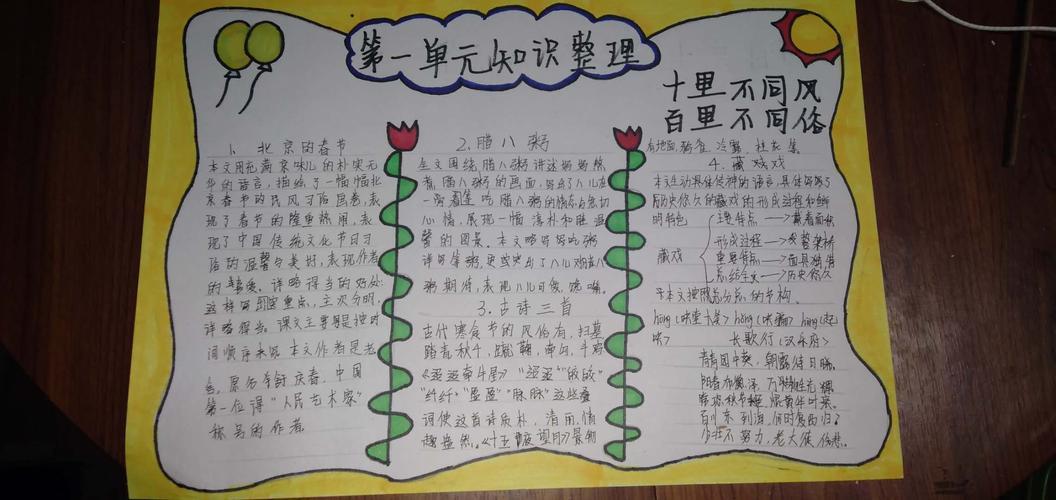 第一单元知识整理
十里不同风
百里不同俗
1. 北京的春节
本文用充满京味儿的朴实无
华的语言,描绘了一幅幅北
京春节的民风习俗画卷,表
现了春节的隆重热闹,表
现了中国传统文化节日习
俗的温馨与美好,表现作者
的喜爱。详略得当的好处:
这样写突出重点,主次分明,
详略得当。课文主要是按时
间顺序来写 本文作者是老
舍,原名舒庆春,中国
第一位得"人民艺术家"
称号的作者
2. 腊八粥
全文围绕腊八粥讲述
腊八粥的画面,写出了八儿在
一旁看 吃腊八粥的 迫切
心情,展现一幅淳朴和睦温
馨的图景。本文略写 吃粥
详写等粥,更 突出了八儿对腊八
粥期待,表现八儿可爱,嘴馋。
3. 古诗三首
古代寒食节的风俗有,扫墓
踏青 秋千,蹴鞠,牵勾,斗鸡
《迢迢牵牛星》"迢迢""皎皎"
"纤纤""盈盈""脉脉"这些叠
词使这首诗质朴,清丽,情
趣盎然。《十五夜望月》是例
有地面, 鸦雀,冷露,桂花 集
4. 藏戏
本文生动具体传神的语言,具体
历史悠久的藏戏的形成过程和鲜
明特色
主要特点→戴着面具
形成过程→
藏戏
重要特点→面具独特
总结全文→历史悠久
本文按照总分总的结构。
hōng(哄堂大笑) hǒng(哄骗) hòng(起
哄)
长歌行(汉乐府)
青青园中葵,朝露待日晞。
阳春布德泽,万物生光辉
常恐秋节至,焜黄华叶衰。
百川东到海,何时复西归。
少壮不努力,老大徒伤悲。